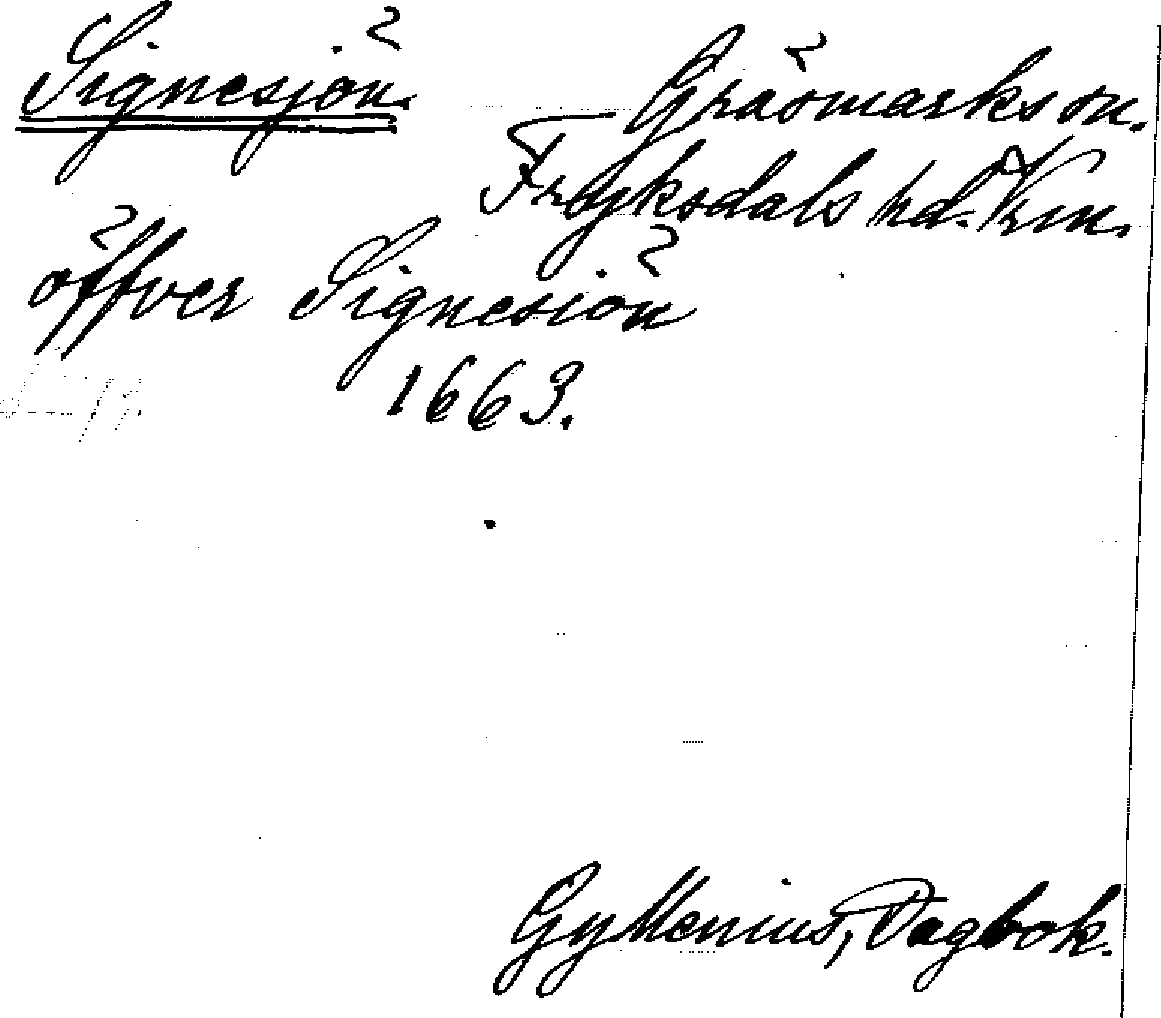 Signesjön.
Gräsmarks sn.
Fryksdals hd. Vrm.
öffver Signesiön
1663.
Gyllenius, Dagbok.